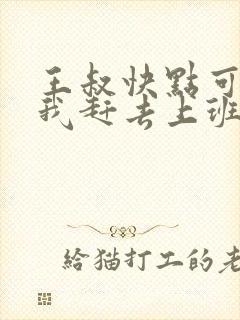 王叔快點可
我赶去上班
給猫打工的老